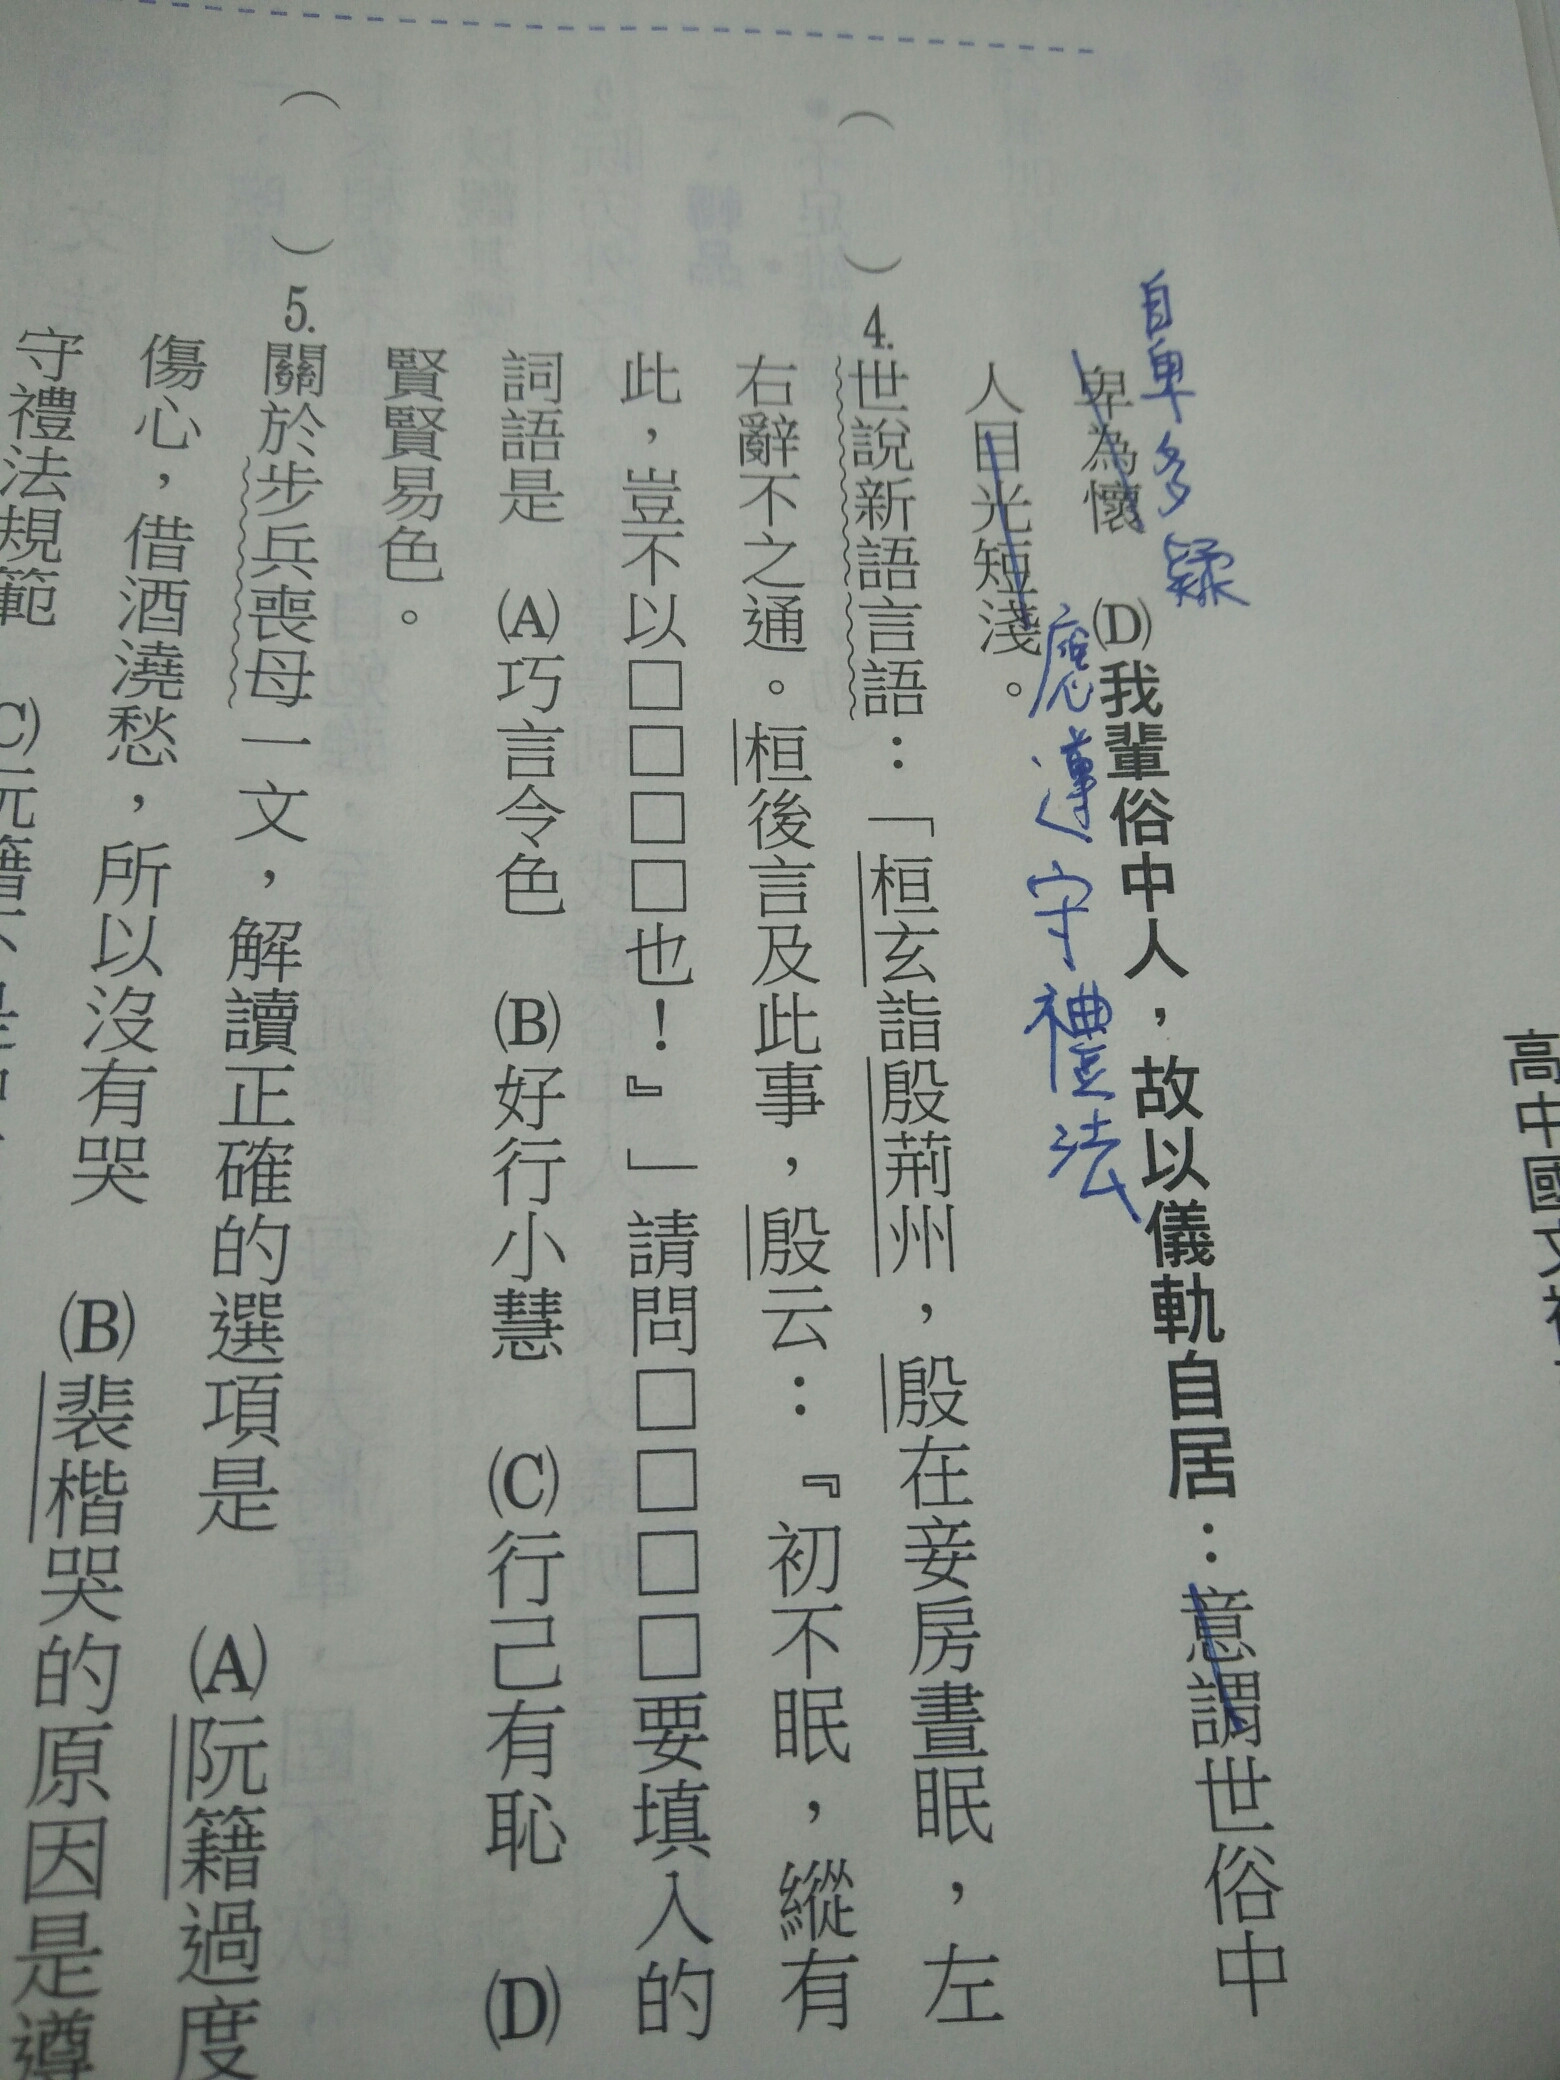 高中國文
自卑多疑
卑為懷　(D)我輩俗中人，故以儀軌自居：意謂世俗中
應遵守禮法
人目光短淺。
(　)4.世說新語言語：「桓玄詣殷荊州，殷在妾房晝眠，左
右辭不之通。桓後言及此事，殷云：『初不眠，縱有
此，豈不以□□□□也！』」請問□□□□要填入的
詞語是　(A)巧言令色　(B)好行小慧　(C)行己有恥　(D)
賢賢易色。
(　)5.關於步兵喪母一文，解讀正確的選項是　(A)阮籍過度
傷心，借酒澆愁，所以沒有哭　(B)裴楷哭的原因是遵
守禮法規範　(C)阮籍不是